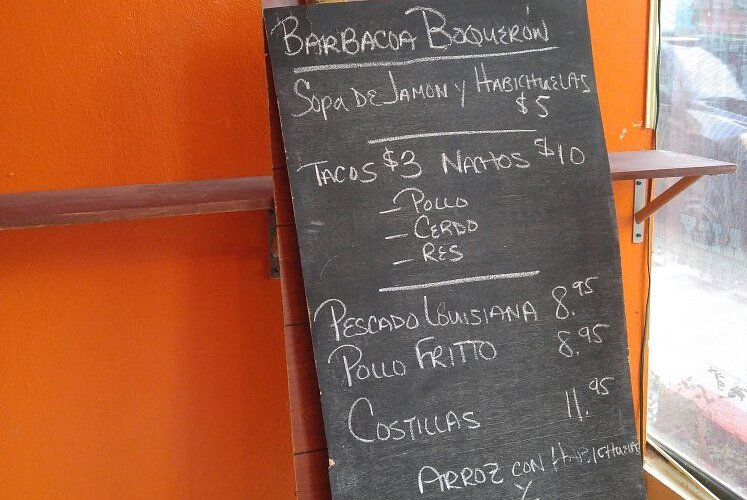 BARBACOA BOQUERÓN
SOPA DE JAMON Y HABICHUELAS
$5
TACOS $3 NACHOS $10
- POLLO
- CERDO
- RES
PESCADO LOUISIANA 8.95
POLLO FRITTO 8.95
COSTILLAS 11.95
ARROZ CON HABICHUELAS
Y